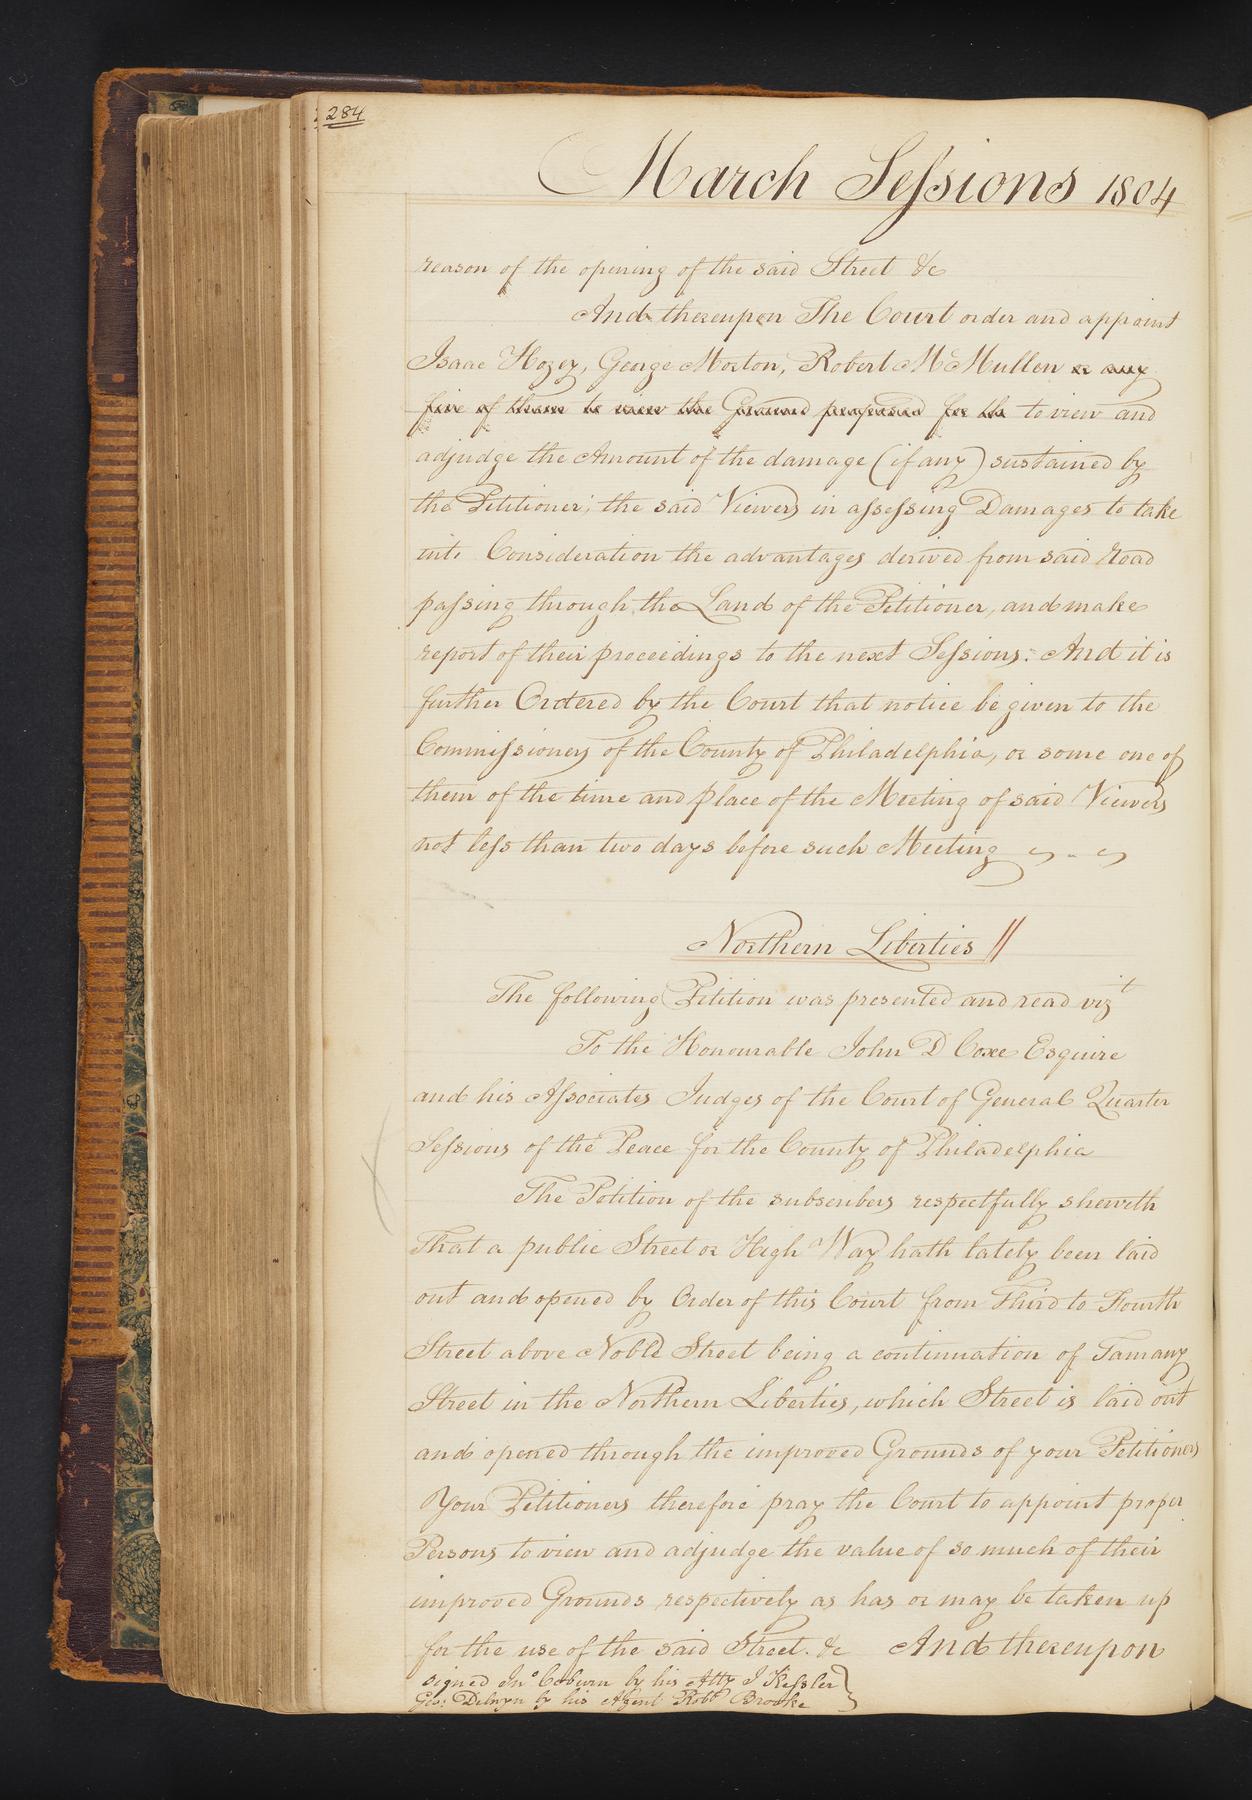 284
March Sessions 1804
reason of the opening of the said Street &c
And thereupon The Court order and appoint
Isaac Hozey, George Morton, Robert McMullen or any
five of them to view the Ground proposed for the to view and
adjudge the Amount of the damage (if any) sustained by
the Petitioner; the said Viewers in assessing Damages to take
into Consideration the advantages derived from said Road
passing through the Land of the Petitioner, and make
report of their proceedings to the next Sessions: And it is
further Ordered by the Court that notice be given to the
Commissioners of the County of Philadelphia, or some one of
them of the time and place of the Meeting of said Viewers
not less than two days before such Meeting
Northern Liberties //
The following Petition was presented and read vizt
To the Honourable John D Coxe Esquire
and his Associates Judges of the Court of General Quarter
Sessions of the Peace for the County of Philadelphia
The Petition of the subscribers respectfully sheweth
That a public Street or High Way hath lately been laid
out and opened by Order of this Court from Third to Fourth
Street above Noble Street being a continuation of Tamany
Street in the Northern Liberties, which Street is laid out
and opened through the improved Grounds of your Petitioners
Your Petitioners therefore pray the Court to appoint proper
Persons to view and adjudge the value of so much of their
improved Grounds respectively as has or may be taken up
for the use of the said Street. &c And thereupon
signed Jno Coburn by his Atty J Kessler
Geo: by his Agent Robt Brooke